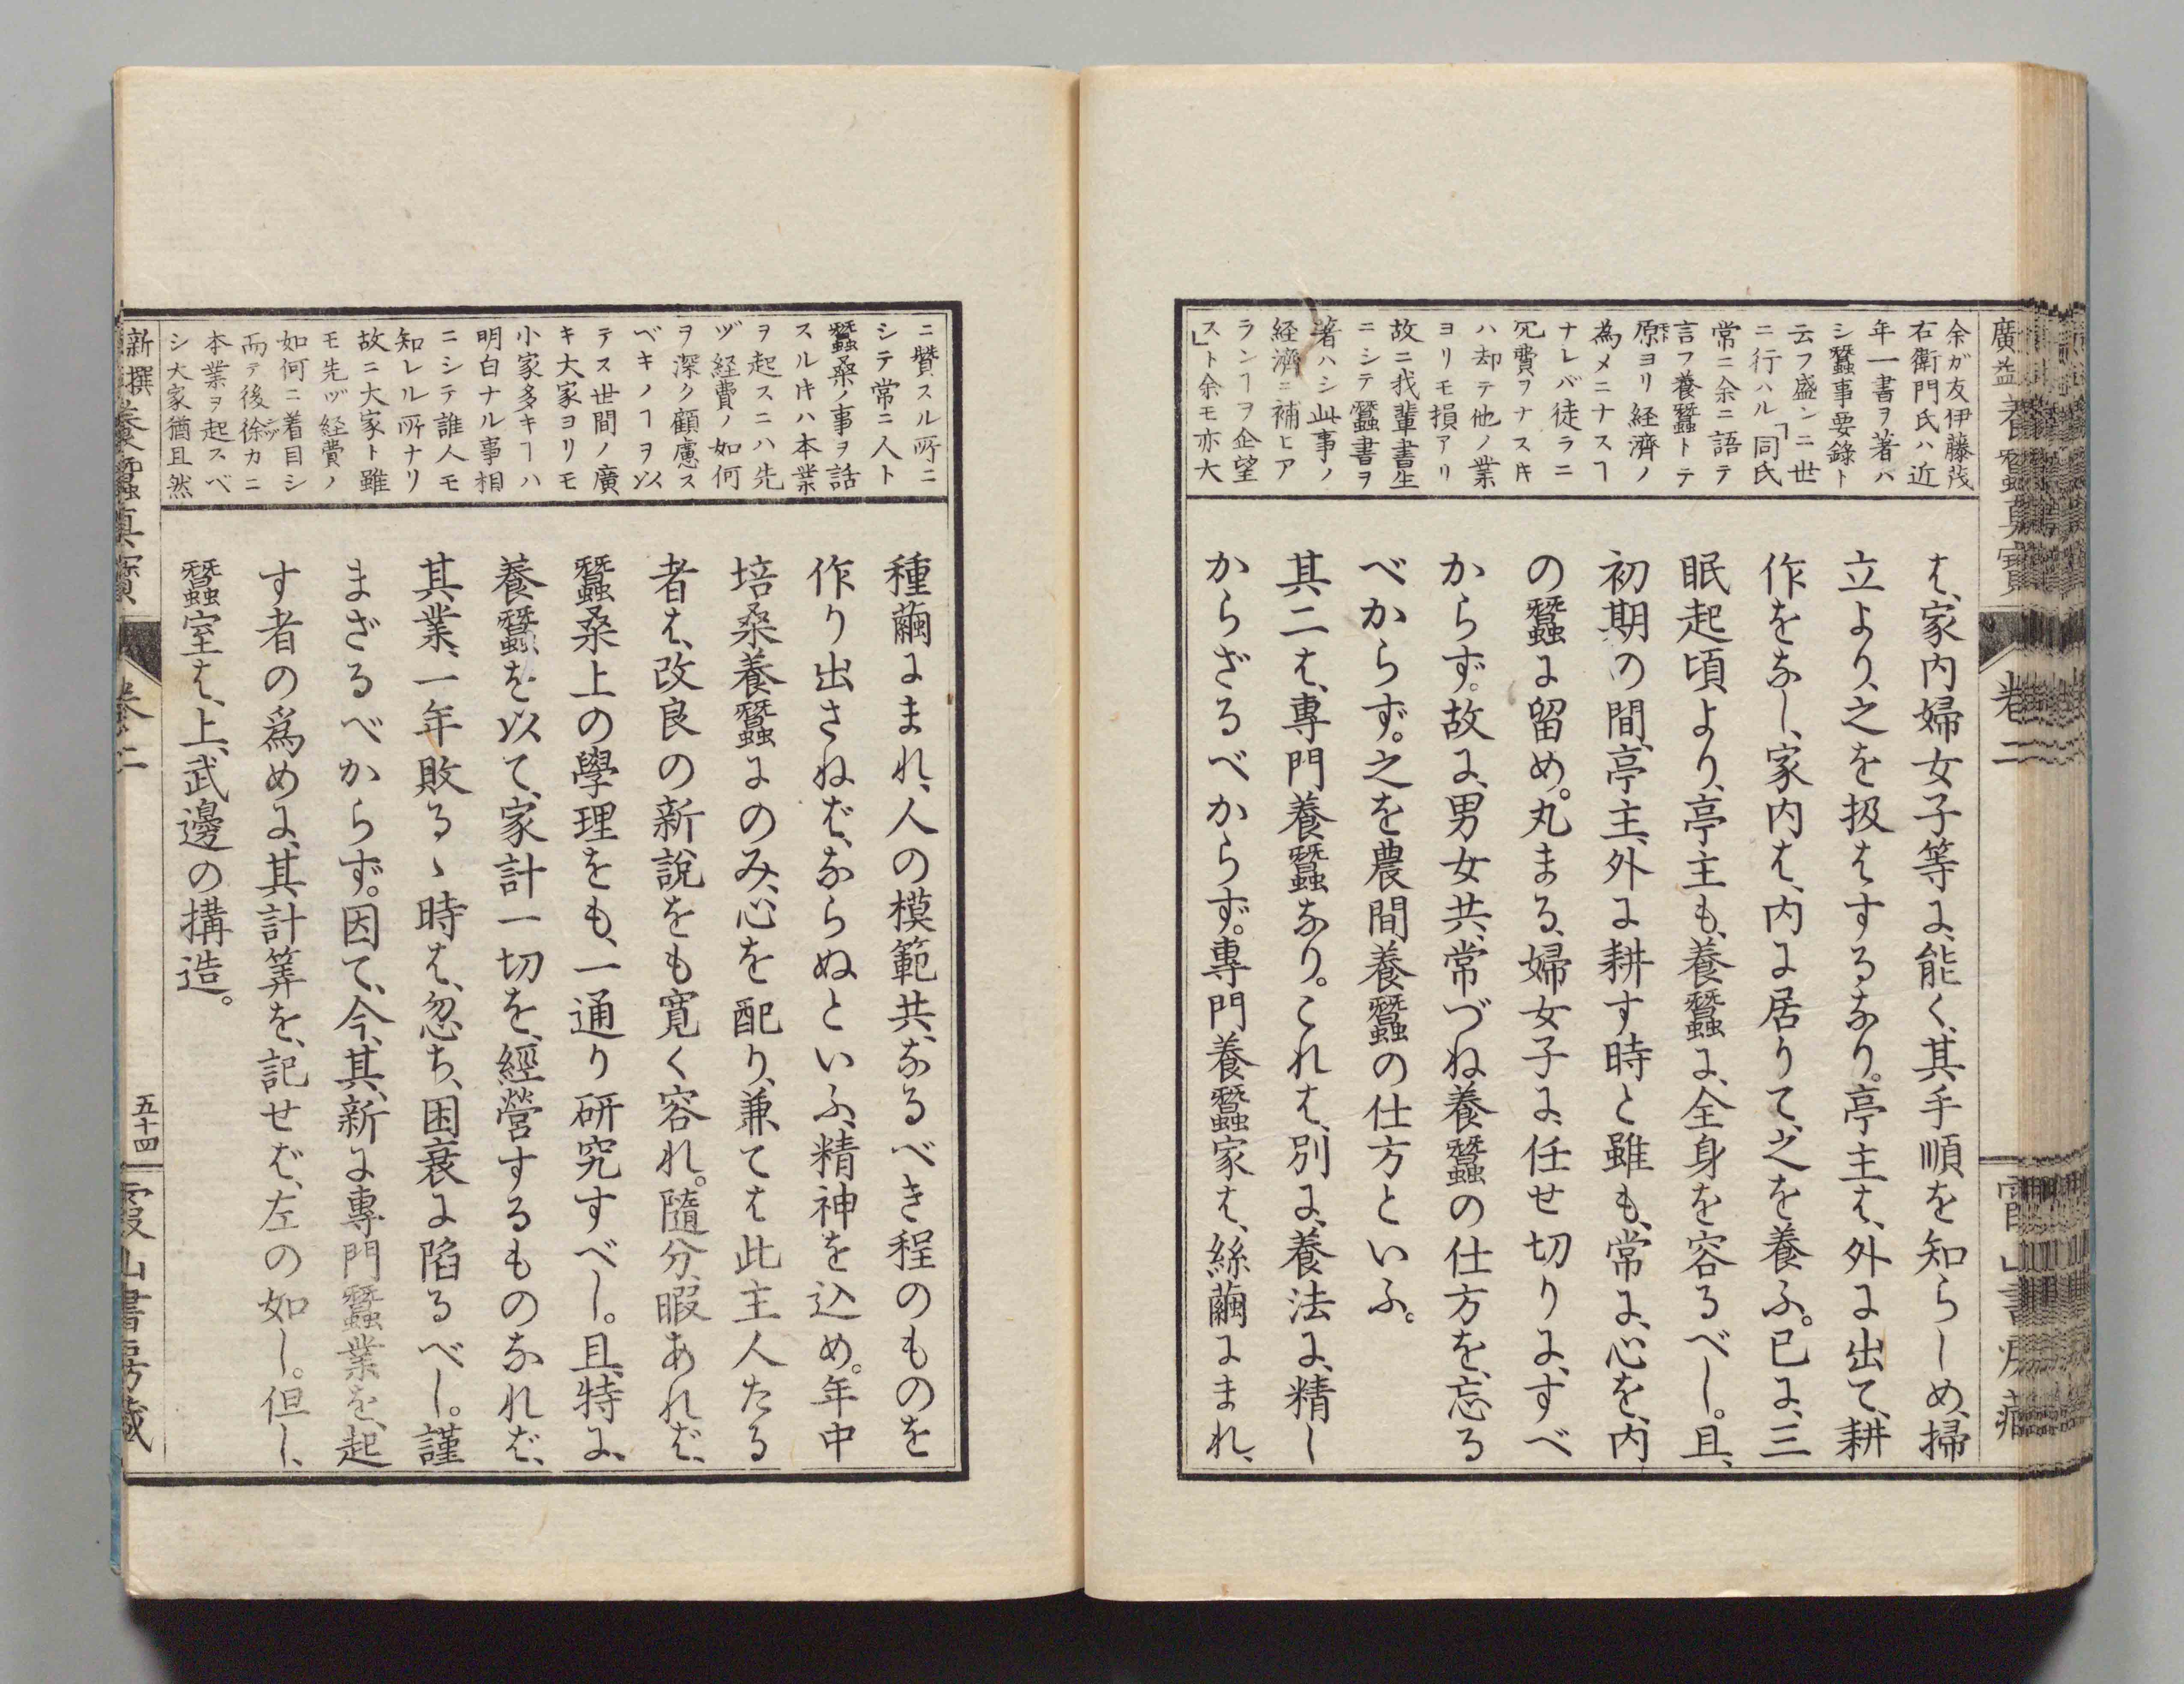 廣益養蠶真寶　卷二　霞山書房藏
余ガ友伊藤茂
右衛門氏ハ近
年一書ヲ著ハ
シ蠶事要錄ト
云フ盛ンニ世
ニ行ハル「同氏
常ニ余ニ語テ
言フ養蠶トテ
原ヨリ経濟ノ
為メニナスヿ
ナレバ徒ラニ
冗費ヲナストキ
ハ却テ他ノ業
ヨリモ損アリ
故ニ我輩書生
ニシテ蠶書ヲ
著ハシ此事ノ
経濟ニ補ヒア
ランヿヲ企望
ス」ト余モ亦大
は、家内婦女子等に、能く、其手順を知らしめ、掃
立より、之を扱はするなり。亭主は、外に出て、耕
作をなし、家内は、内に居りて、之を養ふ。已に、三
眠起頃より、亭主も、養蠶に、全身を容るべし。且、
初期の間、亭主、外に耕す時と雖も、常に、心を、内
の蠶に留め。丸まる、婦女子に、任せ切りに、すべ
からず。故に、男女共、常づね養蠶の仕方を、忘る
べからず。之を農間養蠶の仕方といふ。
其二は、專門養蠶なり。これは、別に、養法に、精し
からざるべからず。專門養蠶家は、絲繭にまれ、
ニ賛スル所ニ
シテ常ニ人ト
蠶桑ノ事ヲ話
スルトキハ本業
ヲ起スニハ先
ヅ経費ノ如何
ヲ深ク顧慮ス
ベキノヿヲ以
テス世間ノ廣
キ大家ヨリモ
小家多キヿハ
明白ナル事相
ニシテ誰人モ
知レル所ナリ
故ニ大家ト雖
モ先ヅ経費ノ
如何ニ着目シ
而テ後徐カニ
本業ヲ起スベ
シ大家猶且然
種繭にまれ、人の模範共、なるべき程のものを
作り出さねば、ならぬといふ、精神を込め。年中
培桑養蠶にのみ、心を配り、兼ては此主人たる
者は、改良の新說をも寛く容れ。隨分、暇あれば、
蠶桑上の學理をも、一通り研究すべし。且、特に、
養蠶を以て、家計一切を、經營するものなれば、
其業、一年敗るゝ時は、忽ち、困衰に陷るべし。謹
まざるべからず。因て、今、其、新に專門蠶業を、起
す者の爲めに、其計筭を、記せば、左の如し。但し、
蠶室は、上、武邊の構造。
新撰養蠶真寶　卷二　五十四　霞山書房藏